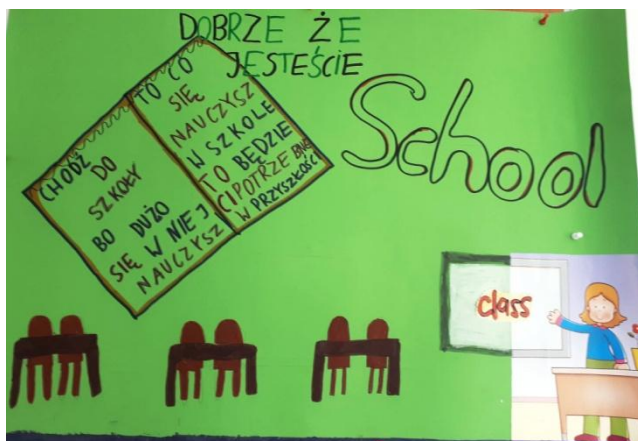 DOBRZE ŻE
JESTEŚCIE
CHODŹ
DO
SZKOŁY
BO DUŻO
SIĘ W NIEJ
NAUCZYSZ
TO CO
SIĘ
NAUCZYSZ
W SZKOLE
TO BĘDZIE
CI POTRZEBNE
W PRZYSZŁOŚCI
School
class